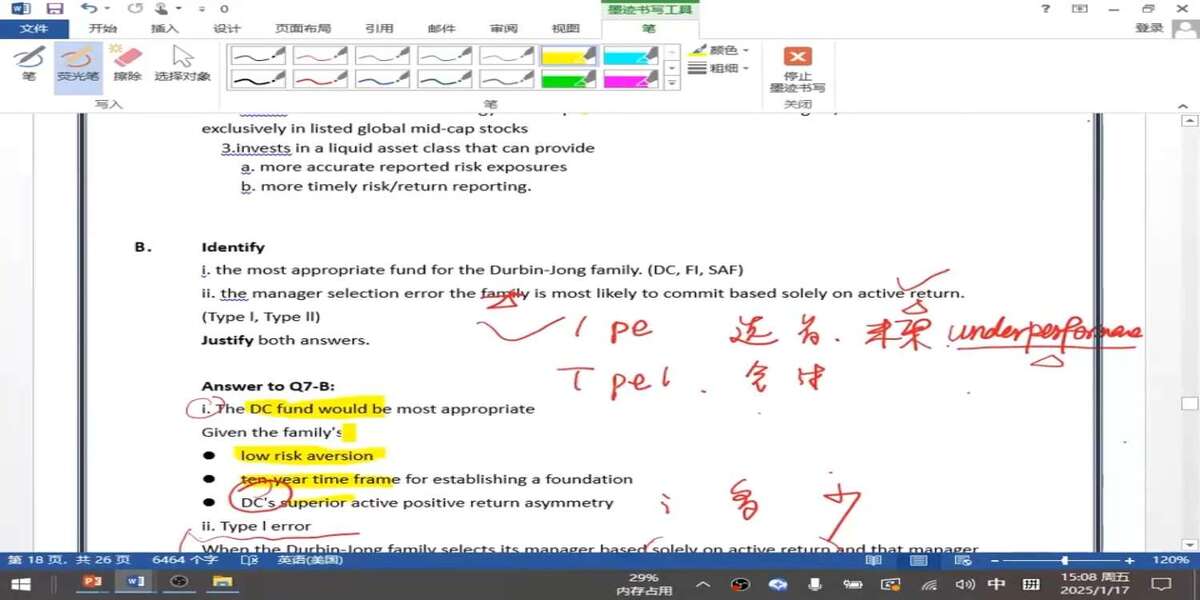 墨迹书写工具
文件 开始 插入 设计 页面布局 引用 邮件 审阅 视图 笔 登录
笔 荧光笔 擦除 选择对象 颜色 粗细 停止墨迹书写
写入 笔 关闭
exclusively in listed global mid-cap stocks
3.invests in a liquid asset class that can provide
a. more accurate reported risk exposures
b. more timely risk/return reporting.
B. Identify
i. the most appropriate fund for the Durbin-Jong family. (DC, FI, SAF)
ii. the manager selection error the family is most likely to commit based solely on active return.
(Type I, Type II)
Justify both answers.
Answer to Q7-B:
i. The DC fund would be most appropriate
Given the family's
● low risk aversion
● ten-year time frame for establishing a foundation
● DC's superior active positive return asymmetry
ii. Type I error
When the Durbin-Jong family selects its manager based solely on active return and that manager
第 18 页，共 26 页 6464 个字 英语(美国) 120%
29% 内存占用 中 拼 15:08 周五 2025/1/17